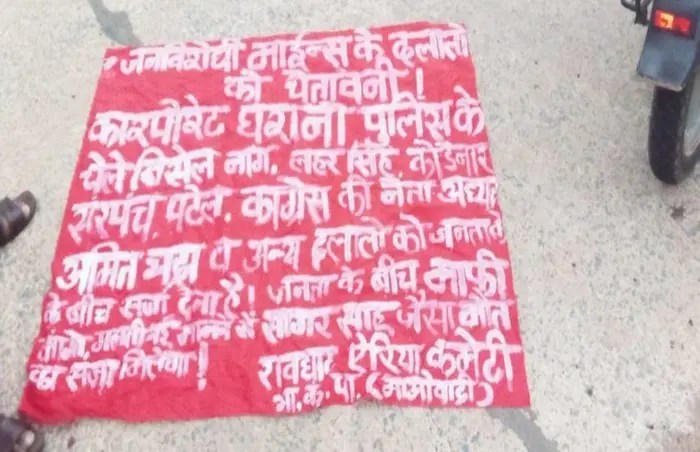 जनविरोधी माईन्स के दलालो
को चेतावनी!
कारपोरेट घराना पुलिस के
चेले विसेल नाग, लहर सिंह, कोडेनार
सरपंच, पटेल, कांग्रेस की नेता
अमित व अन्य दलालो को जनता
के बीच सजा देना है! जनता के बीच माफी
मांगो, गलती नई मानने में सागर साहू जैसा मौत
का सजा मिलेगा! रावघाट ऐरिया कमेटी
भा. क. पा. (माओवादी)